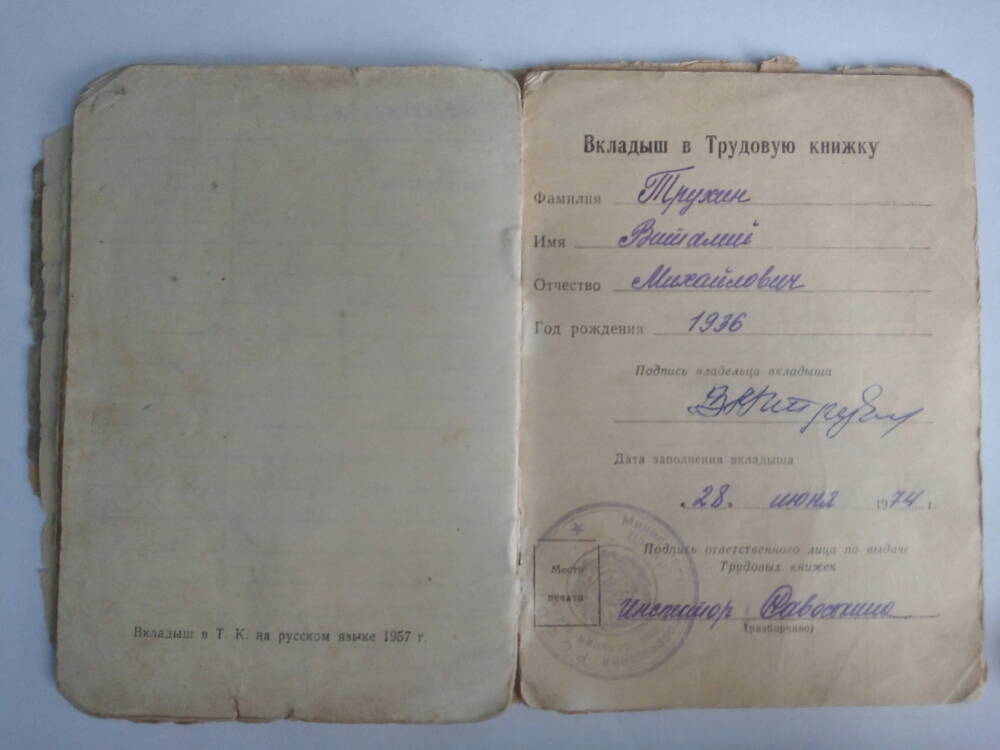 Вкладыш в Т. К. на русском языке 1957 г.
Вкладыш в Трудовую книжку
Фамилия Трухин
Имя Виталий
Отчество Михайлович
Год рождения 1936
Подпись владельца вкладыша
Дата заполнения вкладыша
„28" июня 1974 г.
Место
печати
Подпись ответственного лица по выдаче
Трудовых книжек
инспектор
(разборчиво)